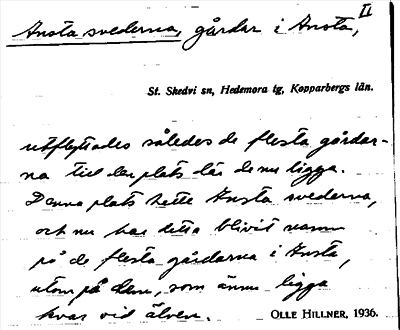 Ansta svederna, gårdar i Ansta, II
St. Skedvi sn, Hedemora tg, Kopparbergs län.
utflyttades således de flesta gårdar-
na till den plats där de nu ligga.
Denna plats hette Ansta svederna,
och nu har detta blivit namn
på de flesta gårdarna i Ansta,
utom på dem, som ännu ligga
kvar vid älven. OLLE HILLNER, 1936.